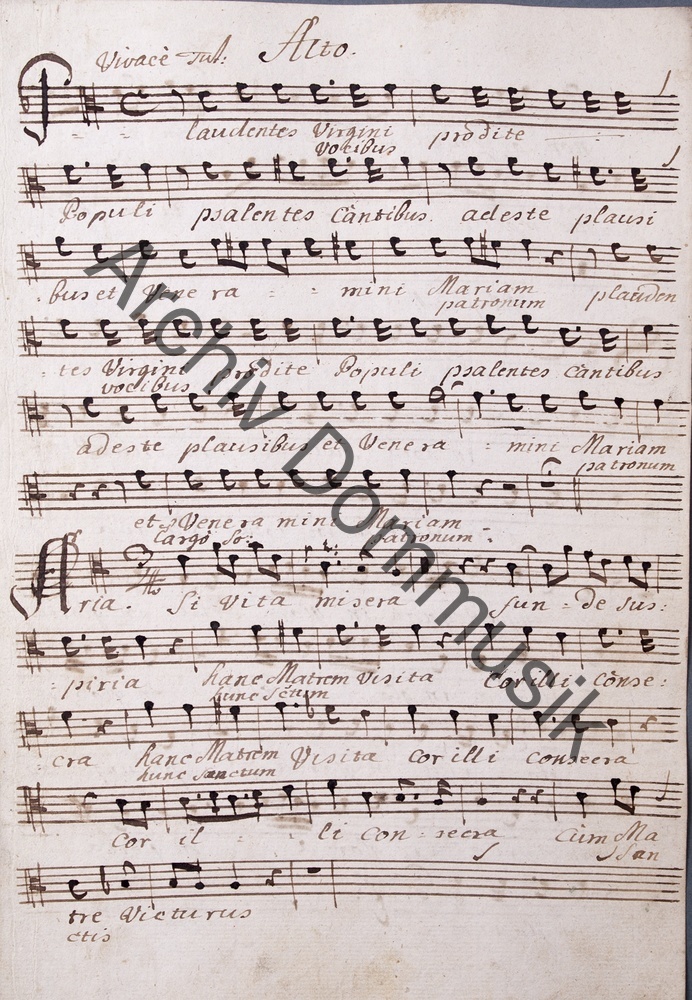 Vivacè Tut: Alto.
Plaudentes Virgini prodite
vocibus
Populi psalentes càntibus adeste plausi
bus et Venera - - mini Mariam plauden
patronum
tes Virgini prodite Populi psalentes càntibus
vocibus
adeste plausibus et Venera - mini Mariam
patronum
et Venera mini Mariam
Largo So: patronum
Aria. Si Vita misera sun - de sus:
- piria hanc Matrem Visita Cor illi cònse:
hunc Sctum
- cra hanc Matrem Visita cor illi consecra
hunc Sanctum
cor il - - li con - secra cùm Ma
San
tre Victurus
ctis
Archiv Dommusik